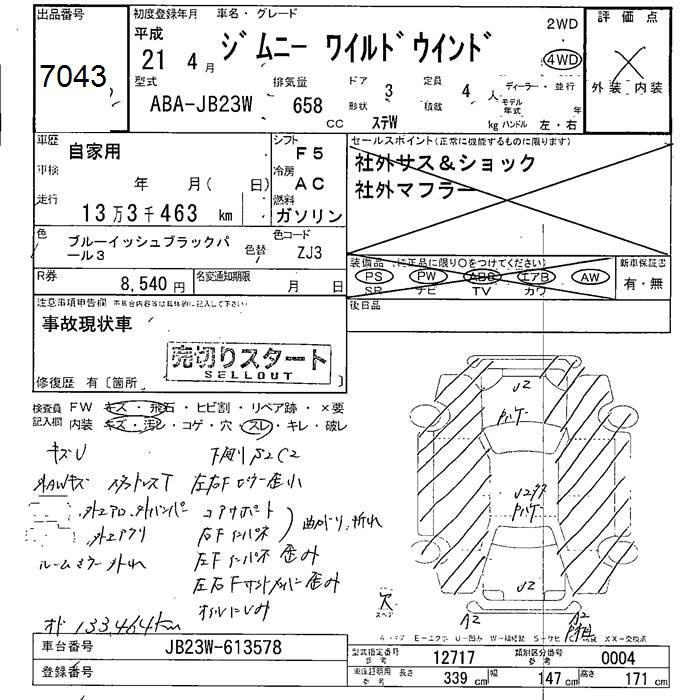 出品番号
7043
初度登録年月 車名・グレード
平成
21 4 月 ジムニー ワイルドウインド
2WD
4WD
評価点
外装 内装
型式
ABA-JB23W
排気量
658
CC
ドア 3
形状 ステW
定員 4 人
積載 kg
ディーラー・並行
モデル年式 年
ハンドル 左・右
車歴
自家用
シフト
F5
車検
年 月( 日)
冷房
AC
走行
13万3千463 km
燃料
ガソリン
色
ブルーイッシュブラックパール3
色替
色コード
ZJ3
R券
8,540 円
名変通知期限
月 日
セールスポイント(正常に機能するものに限ります)
社外サス&ショック
社外マフラー
装備品 (純正品に限り○をつけてください)
PS PW ABC エアB AW
SR ナビ TV カワ
新車保証書
有・無
後日品
注意事項申告欄 不具合内容等は具体的に記入して下さい
事故現状車
売切りスタート
SELLOUT
修復歴 有〔箇所 〕
検査員記入欄
FW キズ・飛石・ヒビ割・リペア跡・×要
内装 キズ・汚レ・コゲ・穴・スレ・キレ・破レ
キズU
下廻りS2C2
外AWキズ
左右F
歪小
コアサポート
右Fインパネ
曲がり、折れ
左Fインパネ歪み
ルームミラー外れ
オイルにじみ
オド 133,464km
J2
Pハゲ
J2
欠
A2
A2
車台番号
JB23W-613578
登録番号
型式指定番号
参考
12717
類別区分番号
参考
0004
車庫証明用
参考
長さ 339 cm 幅 147 cm 高さ 171 cm